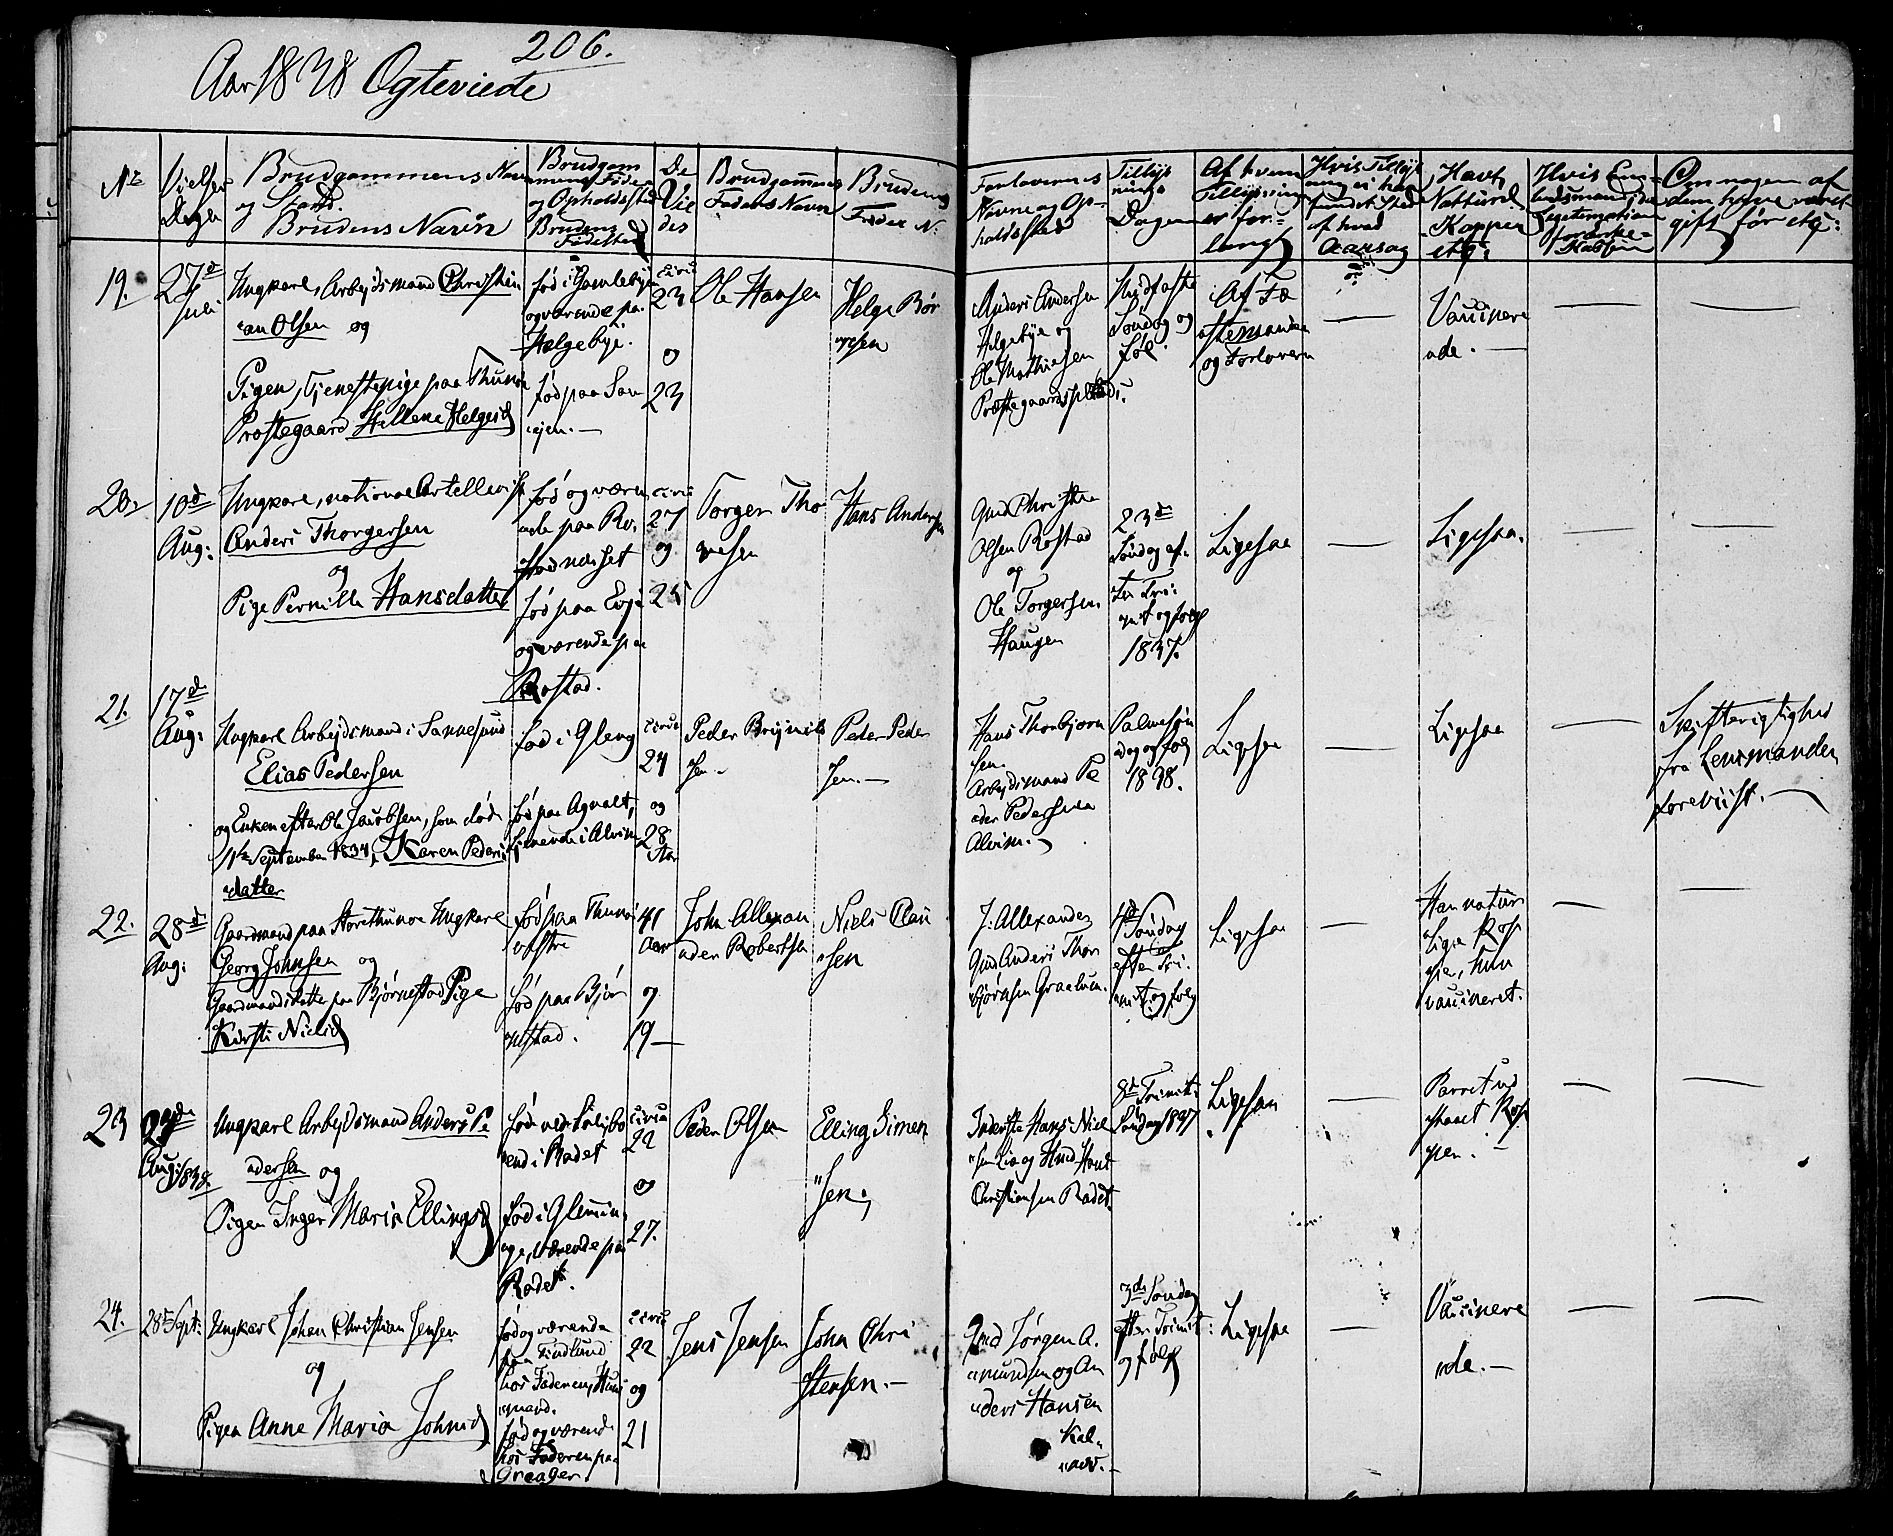 206.
Aar 1838 Ogteviede
No
Vielses Dagen
Brudgommens Navn
og Stand.
Brudens Navn
Brudgom
mens Føde
og Opholdssted
Brudens
Fødested
De
Vie
des
Brudgommes
Faders Navn
Brudens
Fader N:
Forlovernes
Navne og Op-
holdssted
Tillys
nings
Dagen
Af hvem
Tillysning
er for-
langt
Hvis Tillys
ning ei har
fundet Sted
af hvad
Aarsag
Havt
Natturl.
Kopper
etc:
Om nogen af
dem have været
gift før etc:
19.
27d
Juli
Ungkarl, Arbejdsmand Christi
an Olsen og
Pigen, Tjenestepige paa Thunø
Prostegaard Hellene Helgesd
fød i Gamlebyen
og værende paa
Helgebye.
fød paa
circa
23
og
23
Ole Hansen
Helge Bør
gesen
Anders Andersen
Helgebye og
Ole Mathiesen
Præstegaards
Midfaste
Søndag og
føl.
Af Fæ
stemanden
og Forlovern
Vaccinere
ade.
20.
10d
Aug:
Ungkarl, national Artillerist
Anders Thorgersen
og
Pige Pernille Hansdatter
fød og være
nde paa Ro.
stadnæset
fød paa Evje
og værende paa
Rostad.
circa
27
og
25
Torger Tho
gesen
Hans Andersen
Gmd Christen
Olsen Rostad
og
Ole Torgersen
Haugen
23de
Søndag ef-
ter Tri-
nit og følg
1837.
Ligesaa
Ligesaa.
21.
17d
Aug:
Ungkarl Arbejdsmand i Sannesund
Elias Pedersen
og Enken efter Ole Jacobsen, som døde
11te September 1834, Karen Peders
datter
fød i Gleng
fød paa Agvalt,
tjenende i Alvim
circa
24
og
28
Aar
Peder Brynils
sen.
Peder Peder
sen.
Hans Thorbjørn
sen.
Arbejdsmand Pe
der Pedersen
Alvim.
Palmesøn
dag og følg
1838.
Ligesaa
Ligesaa
Skifterigtighed
fra Lensmanden
forevist.
22.
28d
Aug:
Gaardmand paa Storethunøe Ungkarl
Georg Johnsen og
Gaardmandsdatter paa Bjørnestad Pige
Kirsti Nielsd
fød paa Thunø
østre
fød paa Bjør
nstad.
41
Aar
og
19
John Allexan
der Robertsen
Niels Clau
sen
J: Allexander
Gmd Anders Thor
bjørnsen Graalum.
4d Søndag
efter Tri-
nit. og følg
Ligesaa
Han natur
lige Kop
per, hun
vaccineret.
23
29de
Aug: 1838.
Ungkarl Arbejdsmand Anders Pe
dersen og
Pigen Inger Maria Ellingsd
fød ved
i Radet
fød i Glemmin
ge, værende paa
Radet.
circa
22
og
27.
Peder Olsen
Elling Simen
sen.
Inderste Hans Niel
sen Lia og Hmd Hans
Christiansen Radet.
8d Trinit:
Søndag 1837
Ligesaa
Parret ud
staaet Kop
pen.
24.
28d Sept:
Ungkarl Johan Christian Jensen
og
Pigen Anne Maria Johnsd
fød og værende
paa Findlund
hos Faderen, Huus
mand.
fød og værend
hos Faderen paa
Greager
circa
22
og
21
Jens Jensen
John Chri
stensen.
Gmd Jørgen A.
mundsen og An
ders Hansen
Kal-
næs.
3de Søndag
efter Trinit:
og følg
Ligesaa
Vaccinere
de.